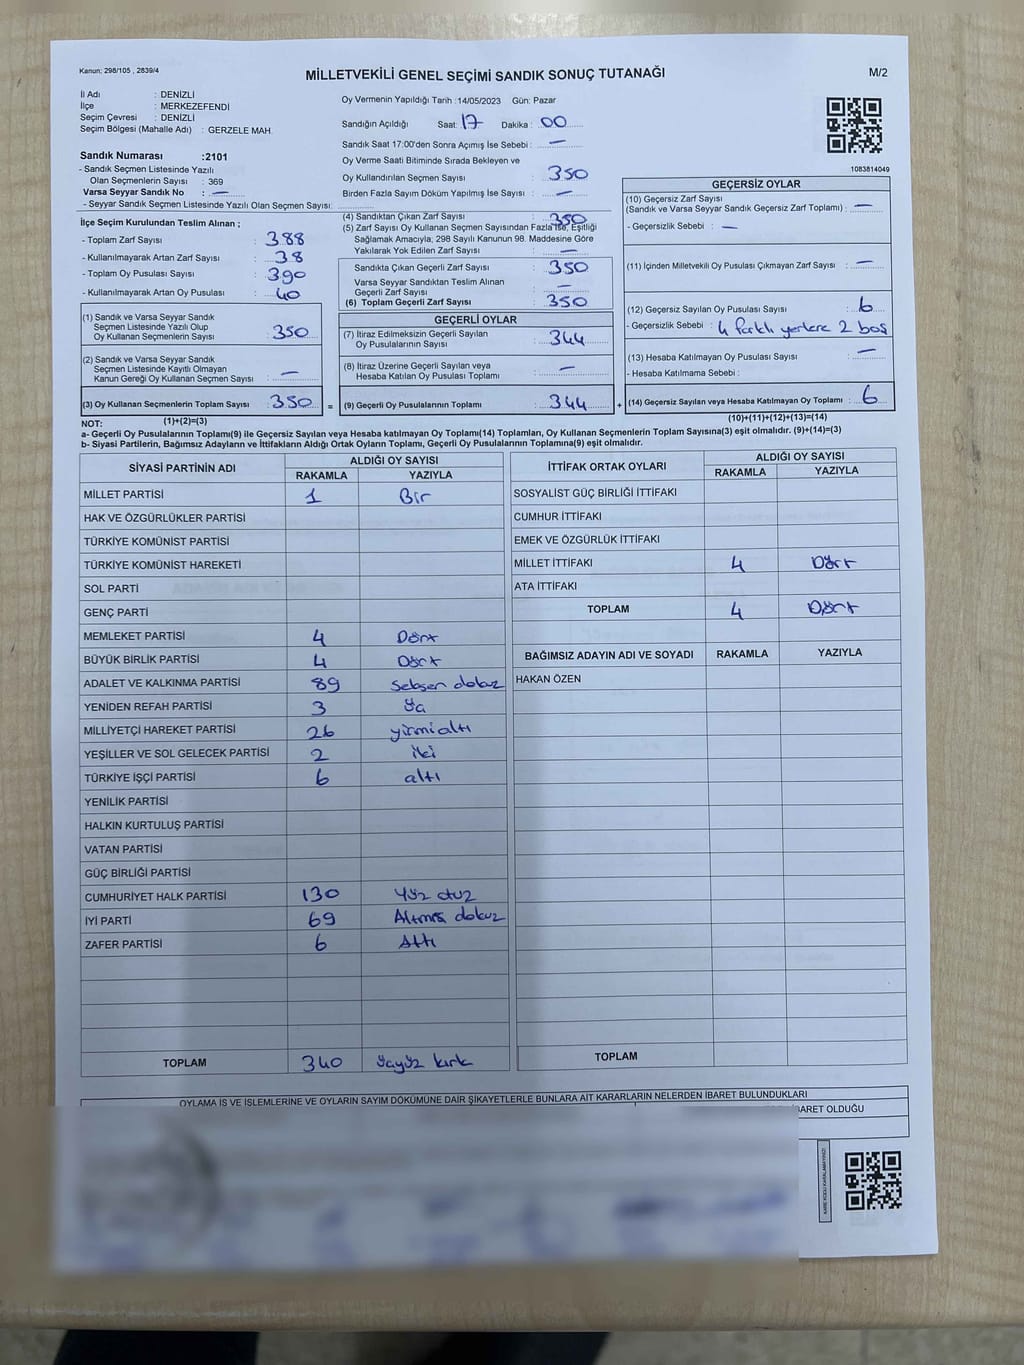 Kanun; 298/105 , 2839/4
MİLLETVEKİLİ GENEL SEÇİMİ SANDIK SONUÇ TUTANAĞI
M/2
İl Adı : DENİZLİ
İlçe : MERKEZEFENDİ
Seçim Çevresi : DENİZLİ
Seçim Bölgesi (Mahalle Adı) : GERZELE MAH.
Sandık Numarası :2101
- Sandık Seçmen Listesinde Yazılı
Olan Seçmenlerin Sayısı : 369
Varsa Seyyar Sandık No : —
- Seyyar Sandık Seçmen Listesinde Yazılı Olan Seçmen Sayısı:
Oy Vermenin Yapıldığı Tarih :14/05/2023 Gün: Pazar
Sandığın Açıldığı Saat: 17 Dakika : 00
Sandık Saat 17:00'den Sonra Açımış İse Sebebi : —
Oy Verme Saati Bitiminde Sırada Bekleyen ve
Oy Kullandırılan Seçmen Sayısı : 350
Birden Fazla Sayım Döküm Yapılmış İse Sayısı : —
1083814049
İlçe Seçim Kurulundan Teslim Alınan ;
- Toplam Zarf Sayısı : 388
- Kullanılmayarak Artan Zarf Sayısı : 38
- Toplam Oy Pusulası Sayısı : 390
- Kullanılmayarak Artan Oy Pusulası : 40
(1) Sandık ve Varsa Seyyar Sandık
Seçmen Listesinde Yazılı Olup
Oy Kullanan Seçmenlerin Sayısı : 350
(2) Sandık ve Varsa Seyyar Sandık
Seçmen Listesinde Kayıtlı Olmayan
Kanun Gereği Oy Kullanan Seçmen Sayısı : —
(3) Oy Kullanan Seçmenlerin Toplam Sayısı : 350
(1)+(2)=(3)
(4) Sandıktan Çıkan Zarf Sayısı : 350
(5) Zarf Sayısı Oy Kullanan Seçmen Sayısından Fazla İse, Eşitliği
Sağlamak Amacıyla; 298 Sayılı Kanunun 98. Maddesine Göre
Yakılarak Yok Edilen Zarf Sayısı : —
Sandıkta Çıkan Geçerli Zarf Sayısı : 350
Varsa Seyyar Sandıktan Teslim Alınan
Geçerli Zarf Sayısı : —
(6) Toplam Geçerli Zarf Sayısı : 350
GEÇERLİ OYLAR
(7) İtiraz Edilmeksizin Geçerli Sayılan
Oy Pusulalarının Sayısı : 344
(8) İtiraz Üzerine Geçerli Sayılan veya
Hesaba Katılan Oy Pusulası Toplamı : —
= (9) Geçerli Oy Pusulalarının Toplamı : 344 +
GEÇERSİZ OYLAR
(10) Geçersiz Zarf Sayısı
(Sandık ve Varsa Seyyar Sandık Geçersiz Zarf Toplamı) : —
- Geçersizlik Sebebi : —
(11) İçinden Milletvekili Oy Pusulası Çıkmayan Zarf Sayısı : —
(12) Geçersiz Sayılan Oy Pusulası Sayısı : 6
- Geçersizlik Sebebi : 4 farklı yerlere 2 boş
(13) Hesaba Katılmayan Oy Pusulası Sayısı : —
- Hesaba Katılmama Sebebi :
(14) Geçersiz Sayılan veya Hesaba Katılmayan Oy Toplamı : 6
(10)+(11)+(12)+(13)=(14)
NOT:
a- Geçerli Oy Pusulalarının Toplamı(9) ile Geçersiz Sayılan veya Hesaba katılmayan Oy Toplamı(14) Toplamları, Oy Kullanan Seçmenlerin Toplam Sayısına(3) eşit olmalıdır. (9)+(14)=(3)
b- Siyasi Partilerin, Bağımsız Adayların ve İttifakların Aldığı Ortak Oyların Toplamı, Geçerli Oy Pusulalarının Toplamına(9) eşit olmalıdır.
SİYASİ PARTİNİN ADI ALDIĞI OY SAYISI
RAKAMLA YAZIYLA
MİLLET PARTİSİ 1 Bir
HAK VE ÖZGÜRLÜKLER PARTİSİ
TÜRKİYE KOMÜNİST PARTİSİ
TÜRKİYE KOMÜNİST HAREKETİ
SOL PARTİ
GENÇ PARTİ
MEMLEKET PARTİSİ 4 Dört
BÜYÜK BİRLİK PARTİSİ 4 Dört
ADALET VE KALKINMA PARTİSİ 89 Seksen dokuz
YENİDEN REFAH PARTİSİ 3 Üç
MİLLİYETÇİ HAREKET PARTİSİ 26 yirmialtı
YEŞİLLER VE SOL GELECEK PARTİSİ 2 iki
TÜRKİYE İŞÇİ PARTİSİ 6 altı
YENİLİK PARTİSİ
HALKIN KURTULUŞ PARTİSİ
VATAN PARTİSİ
GÜÇ BİRLİĞİ PARTİSİ
CUMHURİYET HALK PARTİSİ 130 Yüz otuz
İYİ PARTİ 69 Altmış dokuz
ZAFER PARTİSİ 6 Altı
TOPLAM 340 Üçyüz kırk
İTTİFAK ORTAK OYLARI ALDIĞI OY SAYISI
RAKAMLA YAZIYLA
SOSYALİST GÜÇ BİRLİĞİ İTTİFAKI
CUMHUR İTTİFAKI
EMEK VE ÖZGÜRLÜK İTTİFAKI
MİLLET İTTİFAKI 4 Dört
ATA İTTİFAKI
TOPLAM 4 Dört
BAĞIMSIZ ADAYIN ADI VE SOYADI RAKAMLA YAZIYLA
HAKAN ÖZEN
TOPLAM
OYLAMA İŞ VE İŞLEMLERİNE VE OYLARIN SAYIM DÖKÜMÜNE DAİR ŞİKAYETLERLE BUNLARA AİT KARARLARIN NELERDEN İBARET BULUNDUKLARI
BARET OLDUĞU
KARE KODU KARALAMAYINIZ!